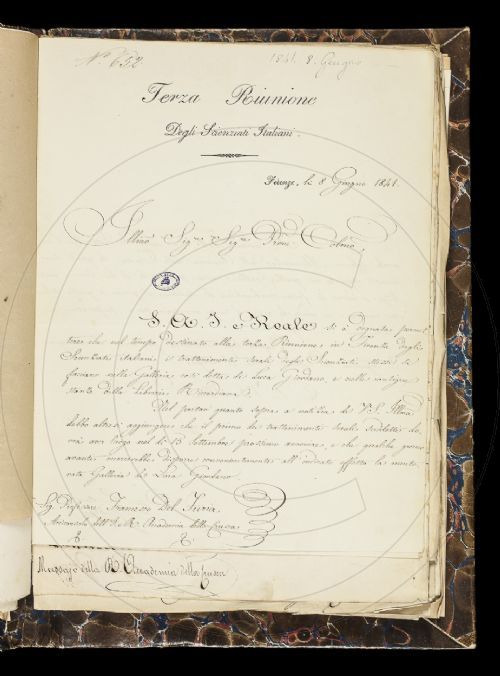 N.º 652
1841. 8. Giugno
Terza Riunione
Degli Scienziati Italiani.
Firenze, li 8 Giugno 1841.
Illmo Sigre Sigre Pron Colmo
S. A. I. e Reale si è degnata permet
tere che nel tempo destinato alla terza Riunione in Firenze degli
Scienziati Italiani, i trattenimenti serali degli Scienziati stessi si
facciano nella Galleria così detta di Luca Giordano, e nelle contigue
stanze della Libreria Riccardiana.
Nel portar quanto sopra a notizia di V. S. Illma
debbo altresì aggiungere che il primo dei trattenimenti serali suddetti do
vrà aver luogo nel dì 15 Settembre prossimo avvenire, e che qualche giorno
avanti converrebbe disporre convenientemente all'indicato effetto la mento
vata Galleria di Luca Giordano.
Sig. Francesco Del Furia
Arciconsolo dell'I. e R. Accademia della Crusca
Messaggio della R. Accademia della Crusca